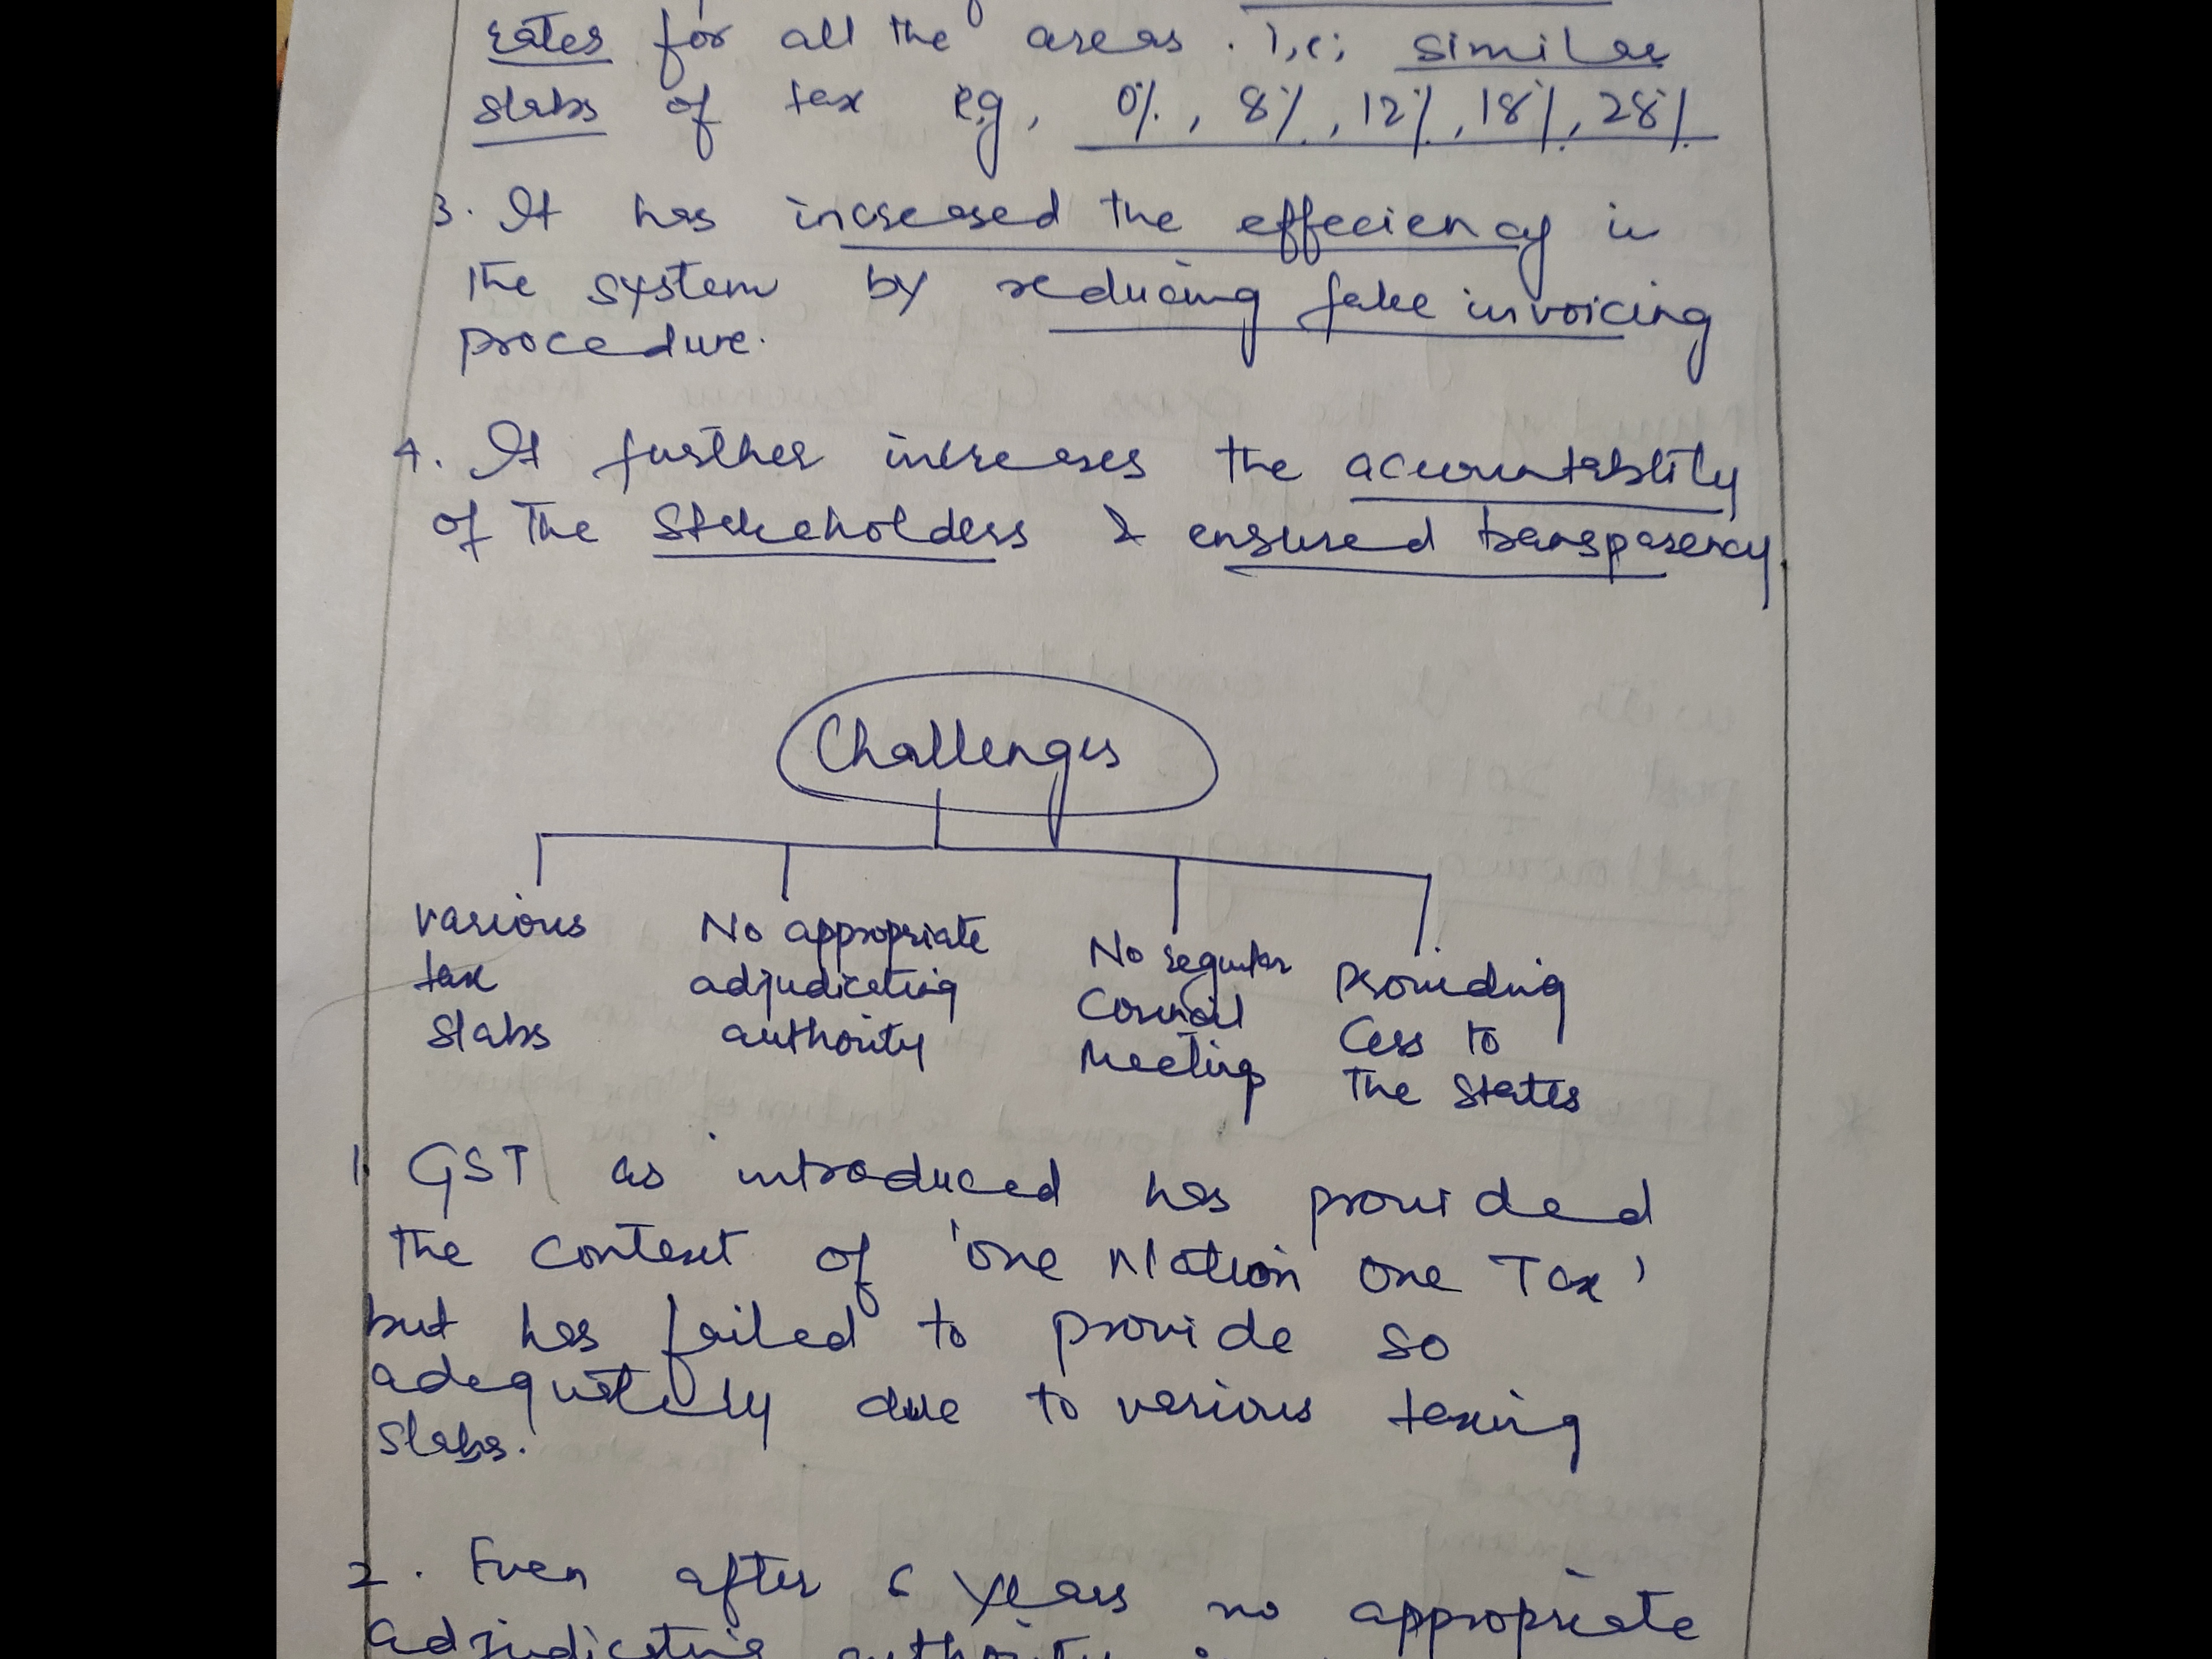 rates for all the areas . i,e; similar
slabs of tax e.g, 0%, 8%, 12%, 18%, 28%
3. It has increased the effeciency in
the system by reducing fake invoicing
procedure.
4. It further increases the accountablity
of the Stakeholders & ensured transparency.
Challenges
various
tax
slabs
No appropriate
adjudicating
authority
No regular
Council
Meetings
Providing
Cess to
the States
1. GST as introduced has provided
the context of 'one Nation One Tax'
but has failed to provide so
adequately due to various taxing
slabs.
2. Even after 6 years no appropriate
adjudicating authority